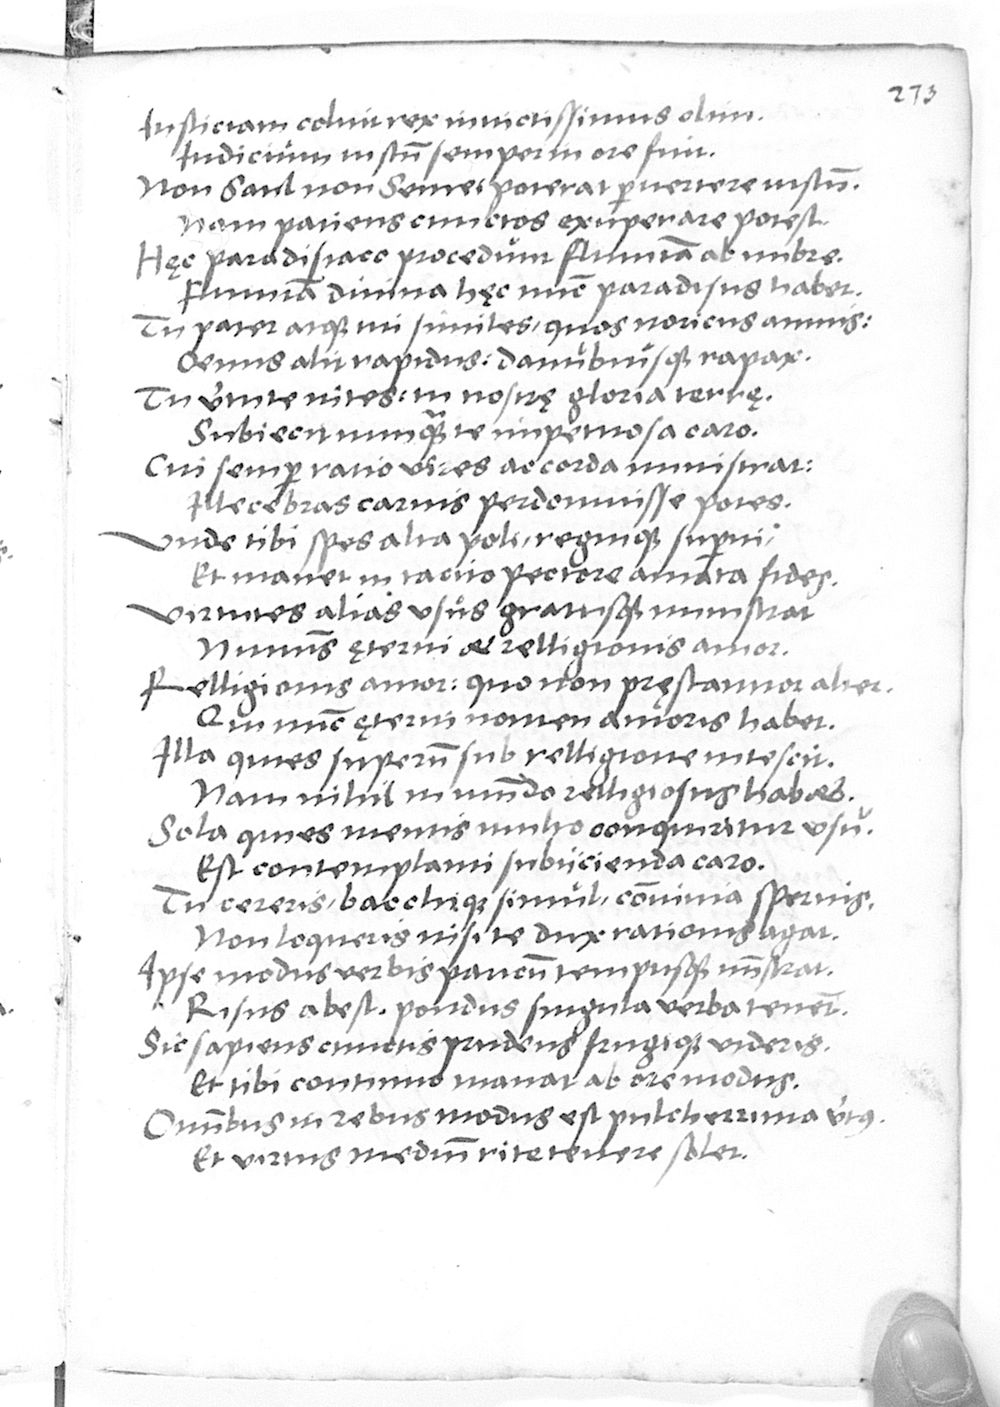 273
Iusticiam coluit rex inuictissimus olim.
Iudiciũm iustũ semper in ore fuit.
Non Saul non Semei poterat ꝑuertere iustũ.
Nam patiens cunctos exuperare potest.
Hęc paradisiaco procedũnt flumĩa ab imbre.
Flumĩa diuina hęc nũc paradisus habet.
Tu pater atqꝫ tui similes, quos noricus amnis:
Oenus alit rapidus: danubiusqꝫ rapax.
Tu ṽtute nites: tu nostrę gloria terrę.
Subiecit nunq̃ te impetuosa caro.
Cui semꝑ ratio vires ac corda ministrat:
Illecebras carnis perdomuisse potes.
Vnde tibi spes alta poli, regniqꝫ suꝑni,
Et manet in tacito pectore amata fides.
Virtutes alias vsus gratusqꝫ ministrat
Numĩs ęterni et relligionis amor.
Relligionis amor: quo non pręstantior alter.
Qui nũc ęterni nomen amoris habet.
Illa quies superũ sub relligione nitescit.
Nam nihil in mũdo relligiosus habet.
Sola quies mentis multo conquiritur vsu.
Est contemplanti subijcienda caro.
Tu cereris, bacchiqꝫ simul, cõuiuia spernis,
Non loqueris nisi te dux rationis agat.
Ipse modus verbis paucũ tempusqꝫ mĩstrat.
Risus abest. pondus singula verba tenẽt.
Sic sapiens cunctis prudens frugiqꝫ videris.
Et tibi continuo manat ab ore modus.
Omĩbus in rebus modus est pulcherrima ṽtꝯ.
Et virtus mediũ rite tenere solet.